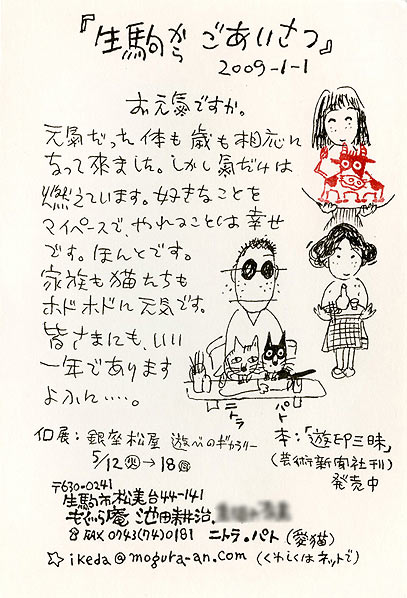 『生駒からごあいさつ』
2009-1-1
お元氣ですか。
元氣だった体も歳も相応に
なって來ました。しかし氣だけは
燃えています。好きなことを
マイペースで、やれることは幸せ
です。ほんとです。
家族も猫たちも
ホドホドに元気です。
皆さまにも、いい
一年であります
ように‥‥。
ニトラ
パト
個展：銀座松屋 遊びのギャラリー
5/12㊋→18㊊
本：「遊印三昧」
(芸術新聞社刊)
発売中
〒630-0241
生駒市松美台44-141
もぐら庵 池田耕治.
FAX 0743(74)0181 ニトラ・パト(愛猫)
☆ ikeda@mogura-an.com (くわしくはネットで)